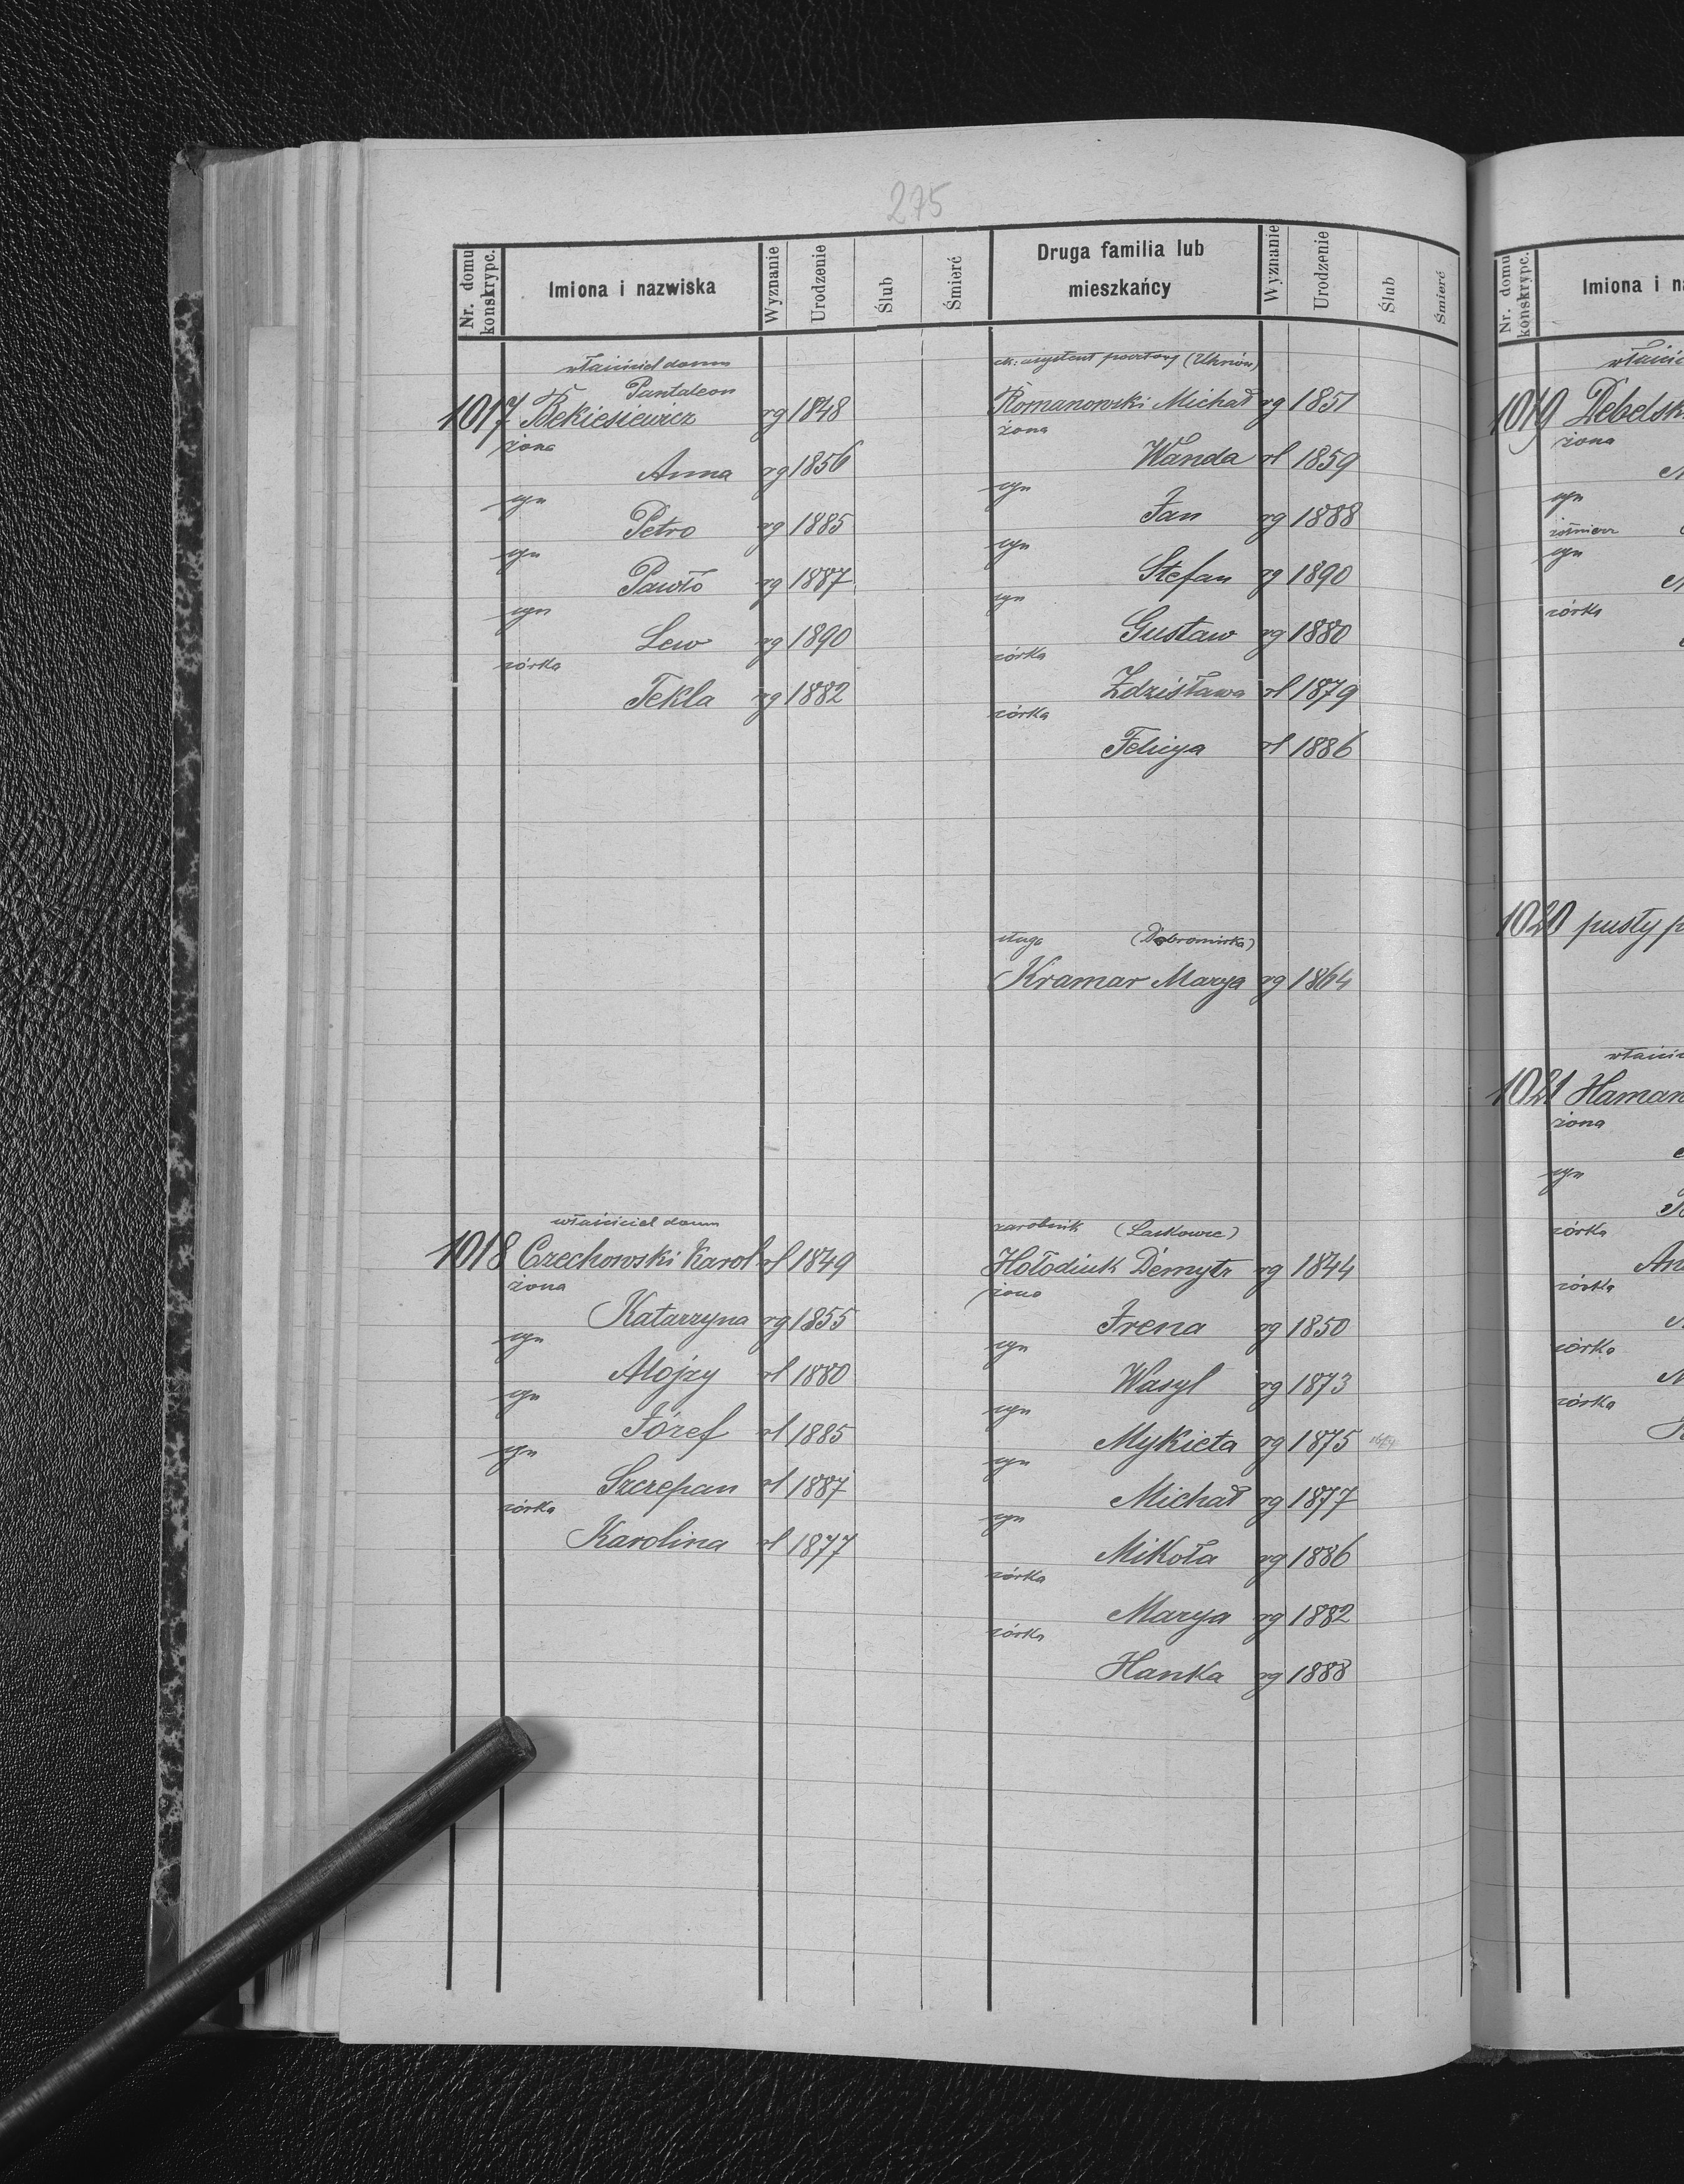 275
Nr. domu konskrypc.
Imiona i nazwiska
Wyznanie
Urodzenie
Ślub
Śmierć
Druga familia lub
mieszkańcy
Wyznanie
Urodzenie
Ślub
Śmierć
właściciel domu
Pantaleon
1017 Bekiesiewicz rg 1848
żona
Anna rg 1856
syn
Petro rg 1885
syn
Pawło rg 1887
syn
Lew rg 1890
córka
Tekla rg 1882
ck: asystent pocztowy (Uhnów)
Romanowski Michał rg 1851
żona
Wanda rl 1859
syn
Jan rg 1888
syn
Stefan rg 1890
syn
Gustaw rg 1880
córka
Zdzisława rl 1879
córka
Felicya rl 1886
sługa (Dobromirka)
Kramar Marya rg 1864
właściciel domu
1018 Czechowski Karol rl 1849
żona
Katarzyna rg 1855
syn
Alojzy rl 1880
syn
Józef rl 1885
syn
Szczepan rl 1887
córka
Karolina rl 1877
zarobnik (Laskowce)
Hołodiuk Dmytr rg 1844
żona
Irena rg 1850
syn
Wasyl rg 1873
syn
Mykieta rg 1875
syn
Michał rg 1877
syn
Mikoła rg 1886
córka
Marya rg 1882
córka
Hanka rg 1888
Nr. domu konskrypc.
Imiona i na
właście
1019 Debelsk
żona
syn
żołnierz
syn
córka
1020 pusty p
właści
1021 Haman
żona
syn
córka
An
córka
córka
córka